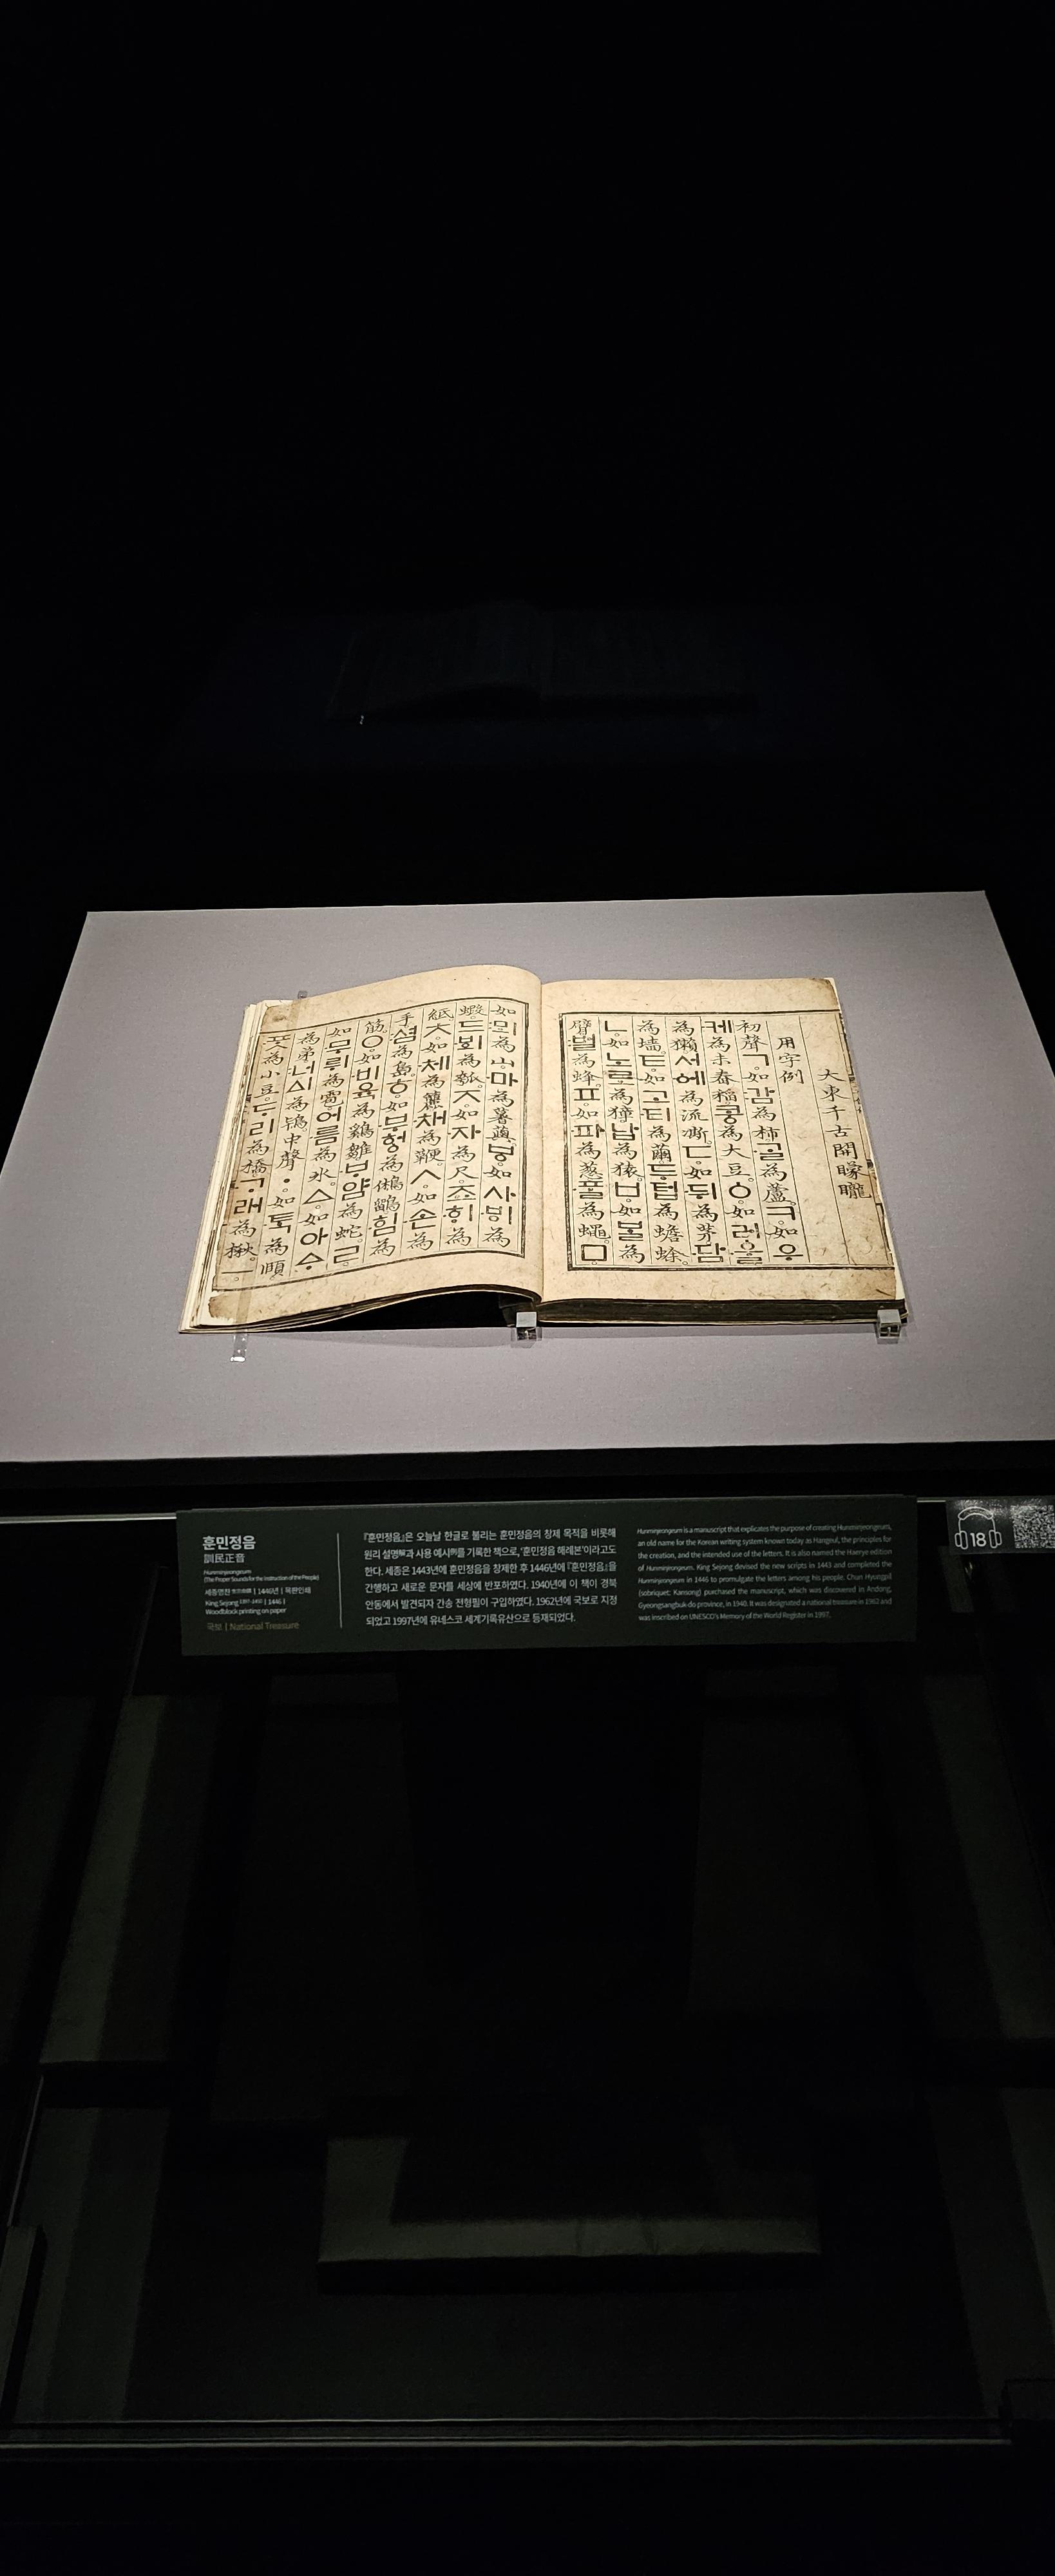 大東千古開矇矓
用字例
初聲ㄱ。如감為柿。ᄀᆞᆯ為蘆。ㅋ。如우
케為未舂稻。콩為大豆。ㆁ。如러ᅌᅮᆯ
為獺。서ᅌᅦ為流凘。ㄷ。如뒤為茅。담
為墻。ㅌ。如고티為繭。두텁為蟾蜍。
ㄴ。如노로為獐。납為猿。ㅂ。如ᄇᆞᆯ為
臂。벌為蜂。ㅍ。如파為葱。ᄑᆞᆯ為蠅。ㅁ
如뫼為山。마為薯藇。ㅸ。如사ᄫᅵ為
蝦。드ᄫᅴ為瓠。ㅈ。如자為尺。죠ᄒᆡ為
紙。ㅊ。如체為籭。채為鞭。ㅅ。如손為
手。셤為島。ㅎ。如부헝為鵂鶹。힘為
筋。ㅇ。如비육為鷄雛。ᄇᆞ얌為蛇。ㄹ。
如무뤼為雹。어름為氷。ㅿ。如아ᅀᆞ
為弟。너ᅀᅵ為鴇。中聲ㆍ。如ᄐᆞᆨ為頤。
ᄑᆞᆺ為小豆。ᄃᆞ리為橋。ᄀᆞ래為楸。ㅡ。
훈민정음
訓民正音
Hunminjeongeum
(The Proper Sounds for the Instruction of the People)
세종명찬 | 1446년 | 목판인쇄
King Sejong 1397-1450 | 1446 |
Woodblock printing on paper
국보 | National Treasure
『훈민정음』은 오늘날 한글로 불리는 훈민정음의 창제 목적을 비롯해
원리 설명解과 사용 예시例를 기록한 책으로, '훈민정음 해례본'이라고도
한다. 세종은 1443년에 훈민정음을 창제한 후 1446년에 『훈민정음』을
간행하고 새로운 문자를 세상에 반포하였다. 1940년에 이 책이 경북
안동에서 발견되자 간송 전형필이 구입하였다. 1962년에 국보로 지정
되었고 1997년에 유네스코 세계기록유산으로 등재되었다.
Hunminjeongeum is a manuscript that explicates the purpose of creating Hunminjeongeum,
an old name for the Korean writing system known today as Hangeul, the principles for
the creation, and the intended use of the letters. It is also named the Haerye edition
of Hunminjeongeum. King Sejong devised the new scripts in 1443 and completed the
Hunminjeongeum in 1446 to promulgate the letters among his people. Chun Hyungpil
(sobriquet: Kansong) purchased the manuscript, which was discovered in Andong,
Gyeongsangbuk-do province, in 1940. It was designated a national treasure in 1962 and
was inscribed on UNESCO's Memory of the World Register in 1997.
18